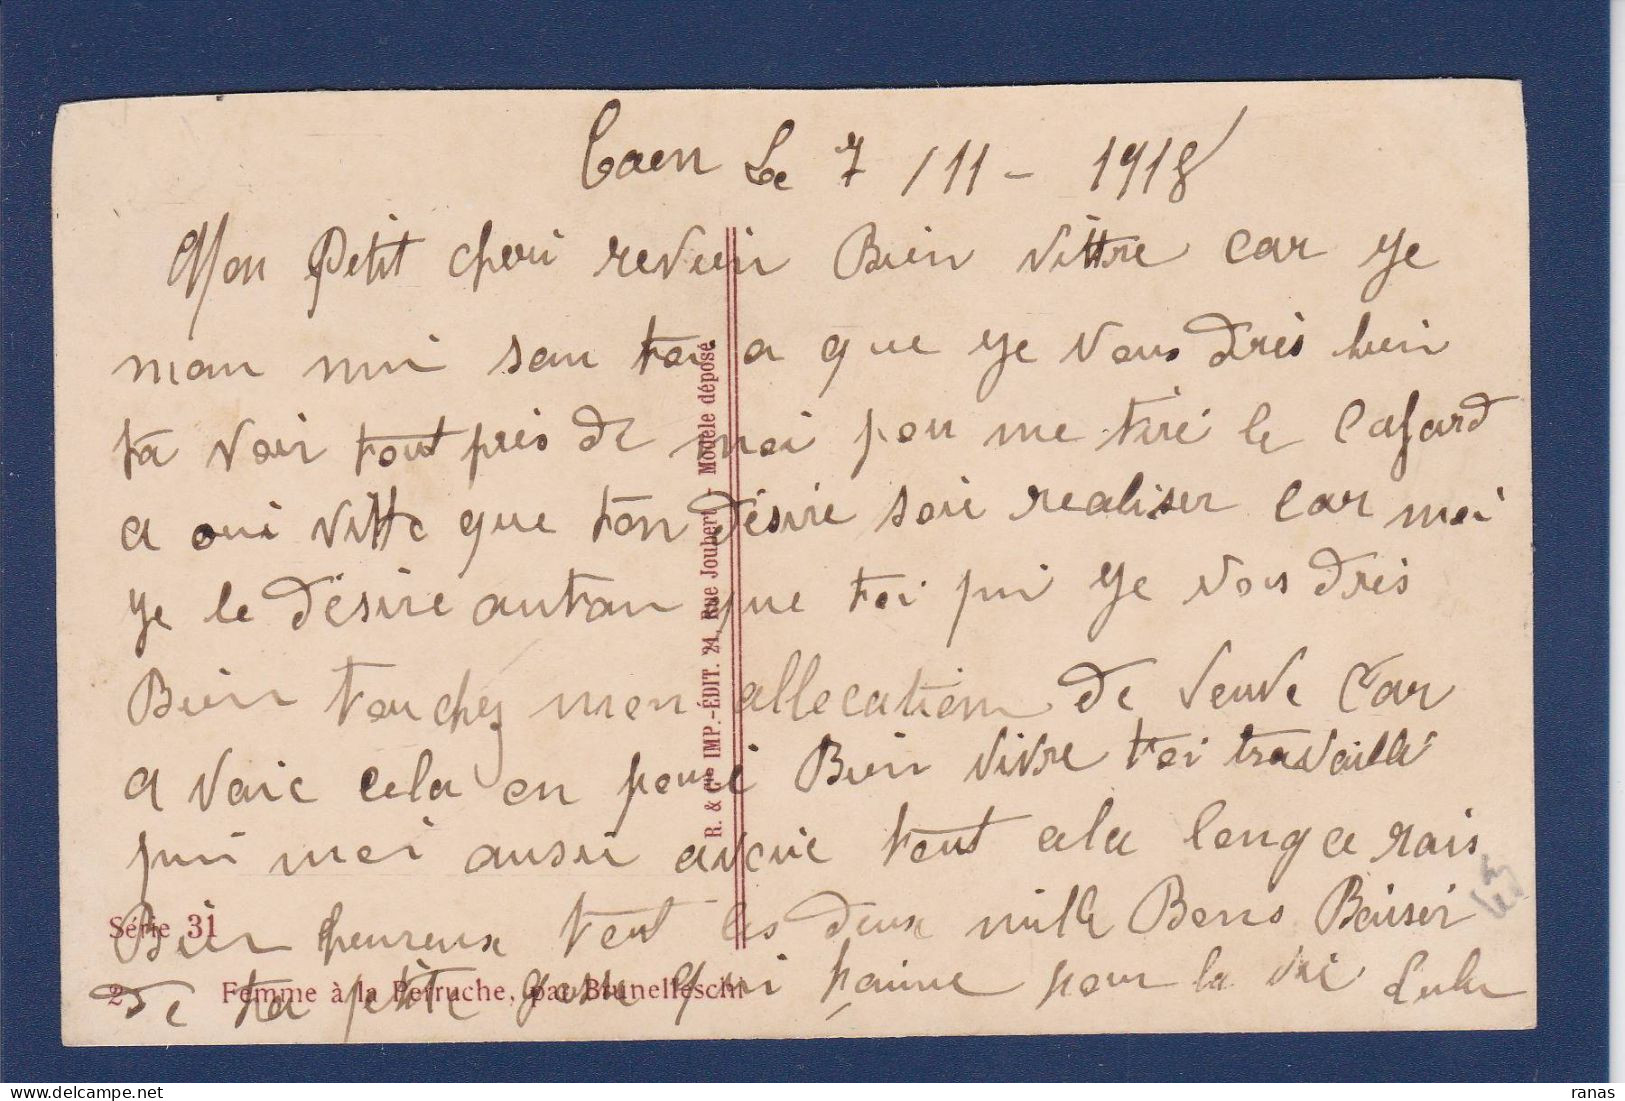 Caen Le 7 /11 - 1918
Mon Petit cheri revien Bien vittre car ye
man nui san toi a que ye vous drès bien
ta voir tout près de moi pou me tiré le cafard
a oui vitte que ton désire soie realiser car moi
ye le désire autan que toi pui ye vous drès
Bien touchez mon allocation de veuve car
a vaic cela on pouré Bien vivre toi travaillé
pui moi aussi avoic tout ala long a rais
Bien heureux tout les deux mille Bons Baiser
de ta petite gosse qui t'aime pour la vie Lulu
R. & Cie IMP.-ÉDIT. 24, Rue Joubert - Modèle déposé
Série 31
2 Femme à la Perruche, par Brunelleschi
ranas